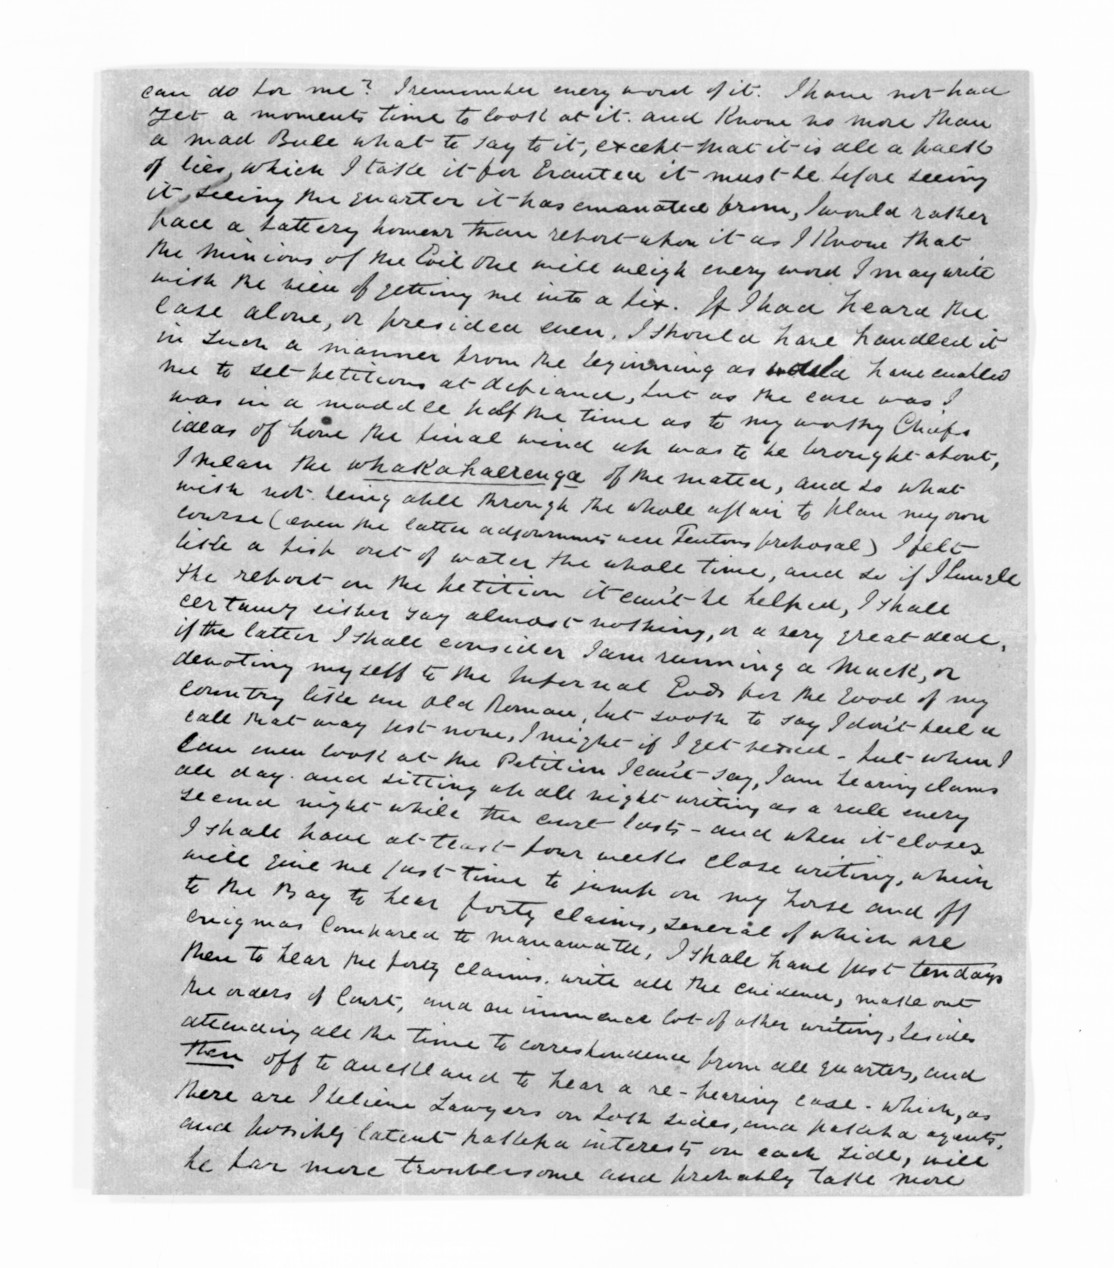 can do for me? I remember every word of it. I have not had
yet a moments time to look at it. and Know no more than
a mad Bull what to say to it, except that it is all a pack
of lies, which I take it for Granted it must be before seeing
it, seeing the quarter it has emanated from, I would rather
face a battery however than report upon it as I Know that
the minions of the Evil One will weigh every word I may write
with the view of getting me into a fix. If I had heard the
case alone, or presided even, I should have handled it
in such a manner from the beginning as would have enabled
me to set petitions at defiance, but as the case was I
was in a muddle half the time as to my worthy Chiefs
ideas of how the final wind up was to be brought about,
I mean the whakahaerenga of the matter, and so what
with not being able through the whole affair to plan my own
course (even the latter adjournments were Fentons proposal) I felt
like a fish out of water the whole time, and so if I bungle
the report on the petition it can't be helped, I shall
certainly either say almost nothing, or a very great deal,
if the latter I shall consider I am running a Muck, or
devoting myself to the Infernal Gods for the Good of my
country like an old Roman, but sooth to say I don't feel a
call that way just now, I might if I get vexed - but when I
can even look at the Petition I can't say, I am hearing claims
all day. and sitting up all night writing as a rule every
second night while the court lasts - and when it closes
I shall have at least four weeks close writing, which
will give me just time to jump on my horse and off
to the Bay to hear forty claims, several of which are
enigmas compared to manawatu, I shall have just ten days
then to hear the forty claims. write all the evidence, make out
the orders of Court, and an immence lot of other writing, besides
attending all the time to correspondence from all quarters, and
then off to auckland to hear a re-hearing case - which, as
there are I believe Lawyers on both sides, and pakeha agents,
and possibly latent pakeha interests on each side, will
be far more troublesome and probably take more